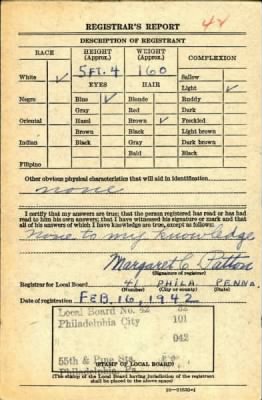 44
REGISTRAR'S REPORT
DESCRIPTION OF REGISTRANT
RACE HEIGHT (Approx.) WEIGHT (Approx.) COMPLEXION
White ✓ 5 FT. 4 160 Sallow
EYES HAIR Light ✓
Negro Blue ✓ Blonde Ruddy
Gray Red Dark
Oriental Hazel Brown ✓ Freckled
Brown Black Light brown
Indian Black Gray Dark brown
Bald Black
Filipino
Other obvious physical characteristics that will aid in identification
none
I certify that my answers are true; that the person registered has read or has had
read to him his own answers; that I have witnessed his signature or mark and that
all of his answers of which I have knowledge are true, except as follows:
None to my knowledge
Margaret C. Patton
(Signature of registrar)
Registrar for Local Board 41 PHILA PENNA.
(Number) (City or county) (State)
Date of registration FEB. 16, 1942
Local Board No. 42 32
Philadelphia City 101
042
55th & Pine Sts.
Philadelphia, Pa.
(STAMP OF LOCAL BOARD)
(The stamp of the Local Board having jurisdiction of the registrant
shall be placed in the above space)